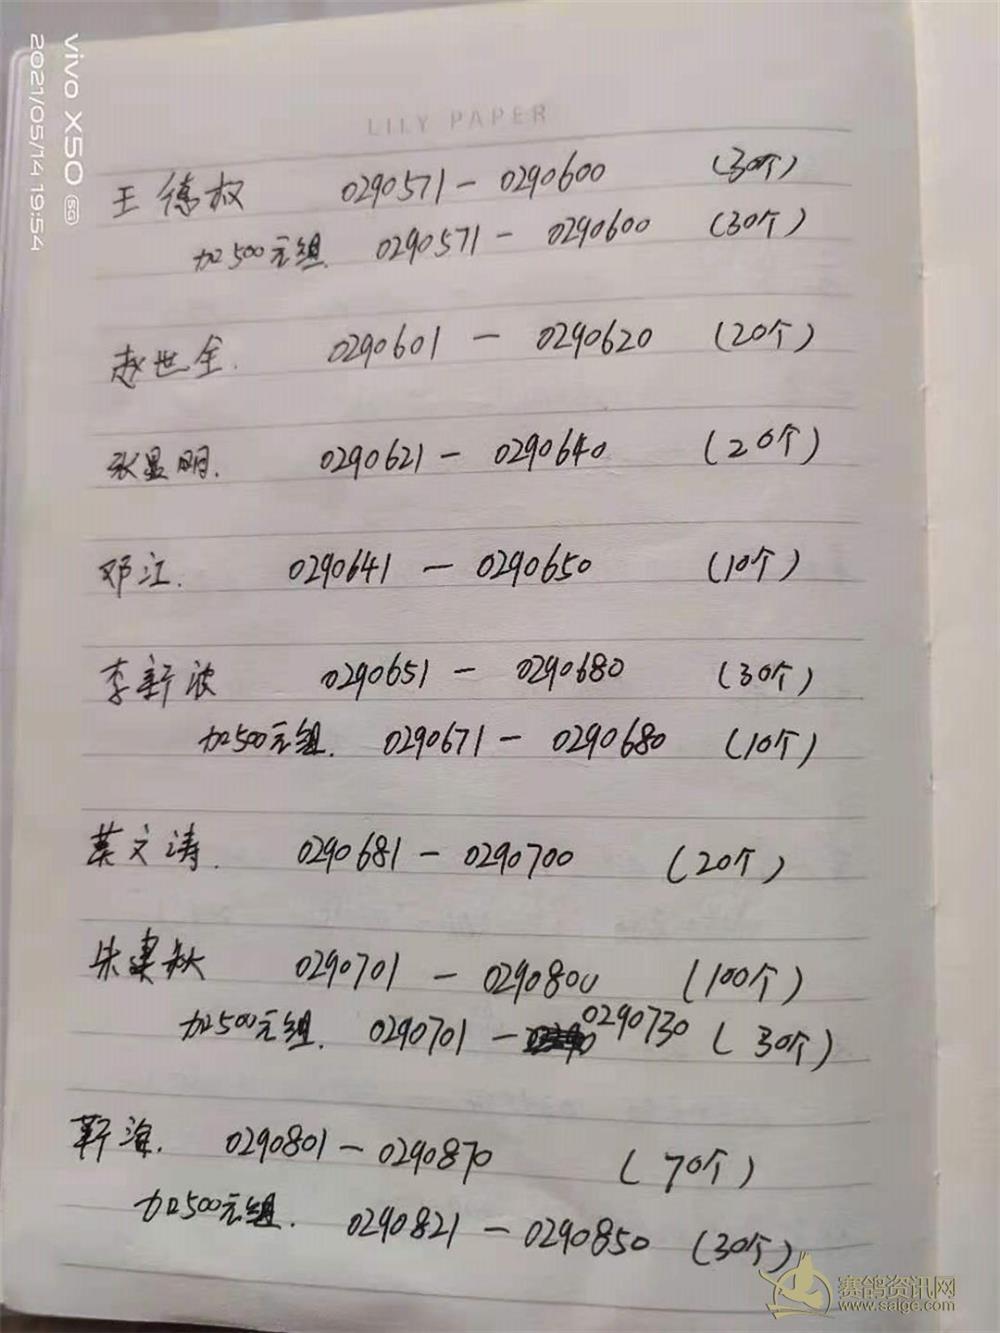 vivo X50 5G
2021/05/14 19:54
LILY PAPER
王德权 0290571－0290600 (30个)
加500元组. 0290571－0290600 (30个)
赵世全. 0290601－0290620 (20个)
张显明. 0290621－0290640 (20个)
邓江. 0290641－0290650 (10个)
李新波 0290651－0290680 (30个)
加500元组. 0290671－0290680 (10个)
莫文涛. 0290681－0290700 (20个)
朱建秋 0290701－0290800 (100个)
加500元组. 0290701－0290730 (30个)
靳海. 0290801－0290870 (70个)
加500元组. 0290821－0290850 (30个)
赛鸽资讯网
www.saige.com